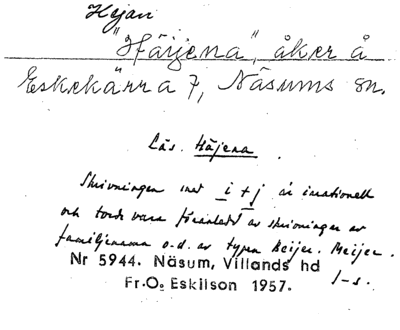 Hejan
"Häijena", åker å
Eskekärra 7, Näsums sn.
Läs. Häjena.
Skrivningen med i + j är irrationell
och torde vara föranledd av skrivningen av
familjenamn o.d. av typen Beijer. Meijer.
Nr 5944. Näsum, Villands hd
I-s.
Fr.O. Eskilson 1957.